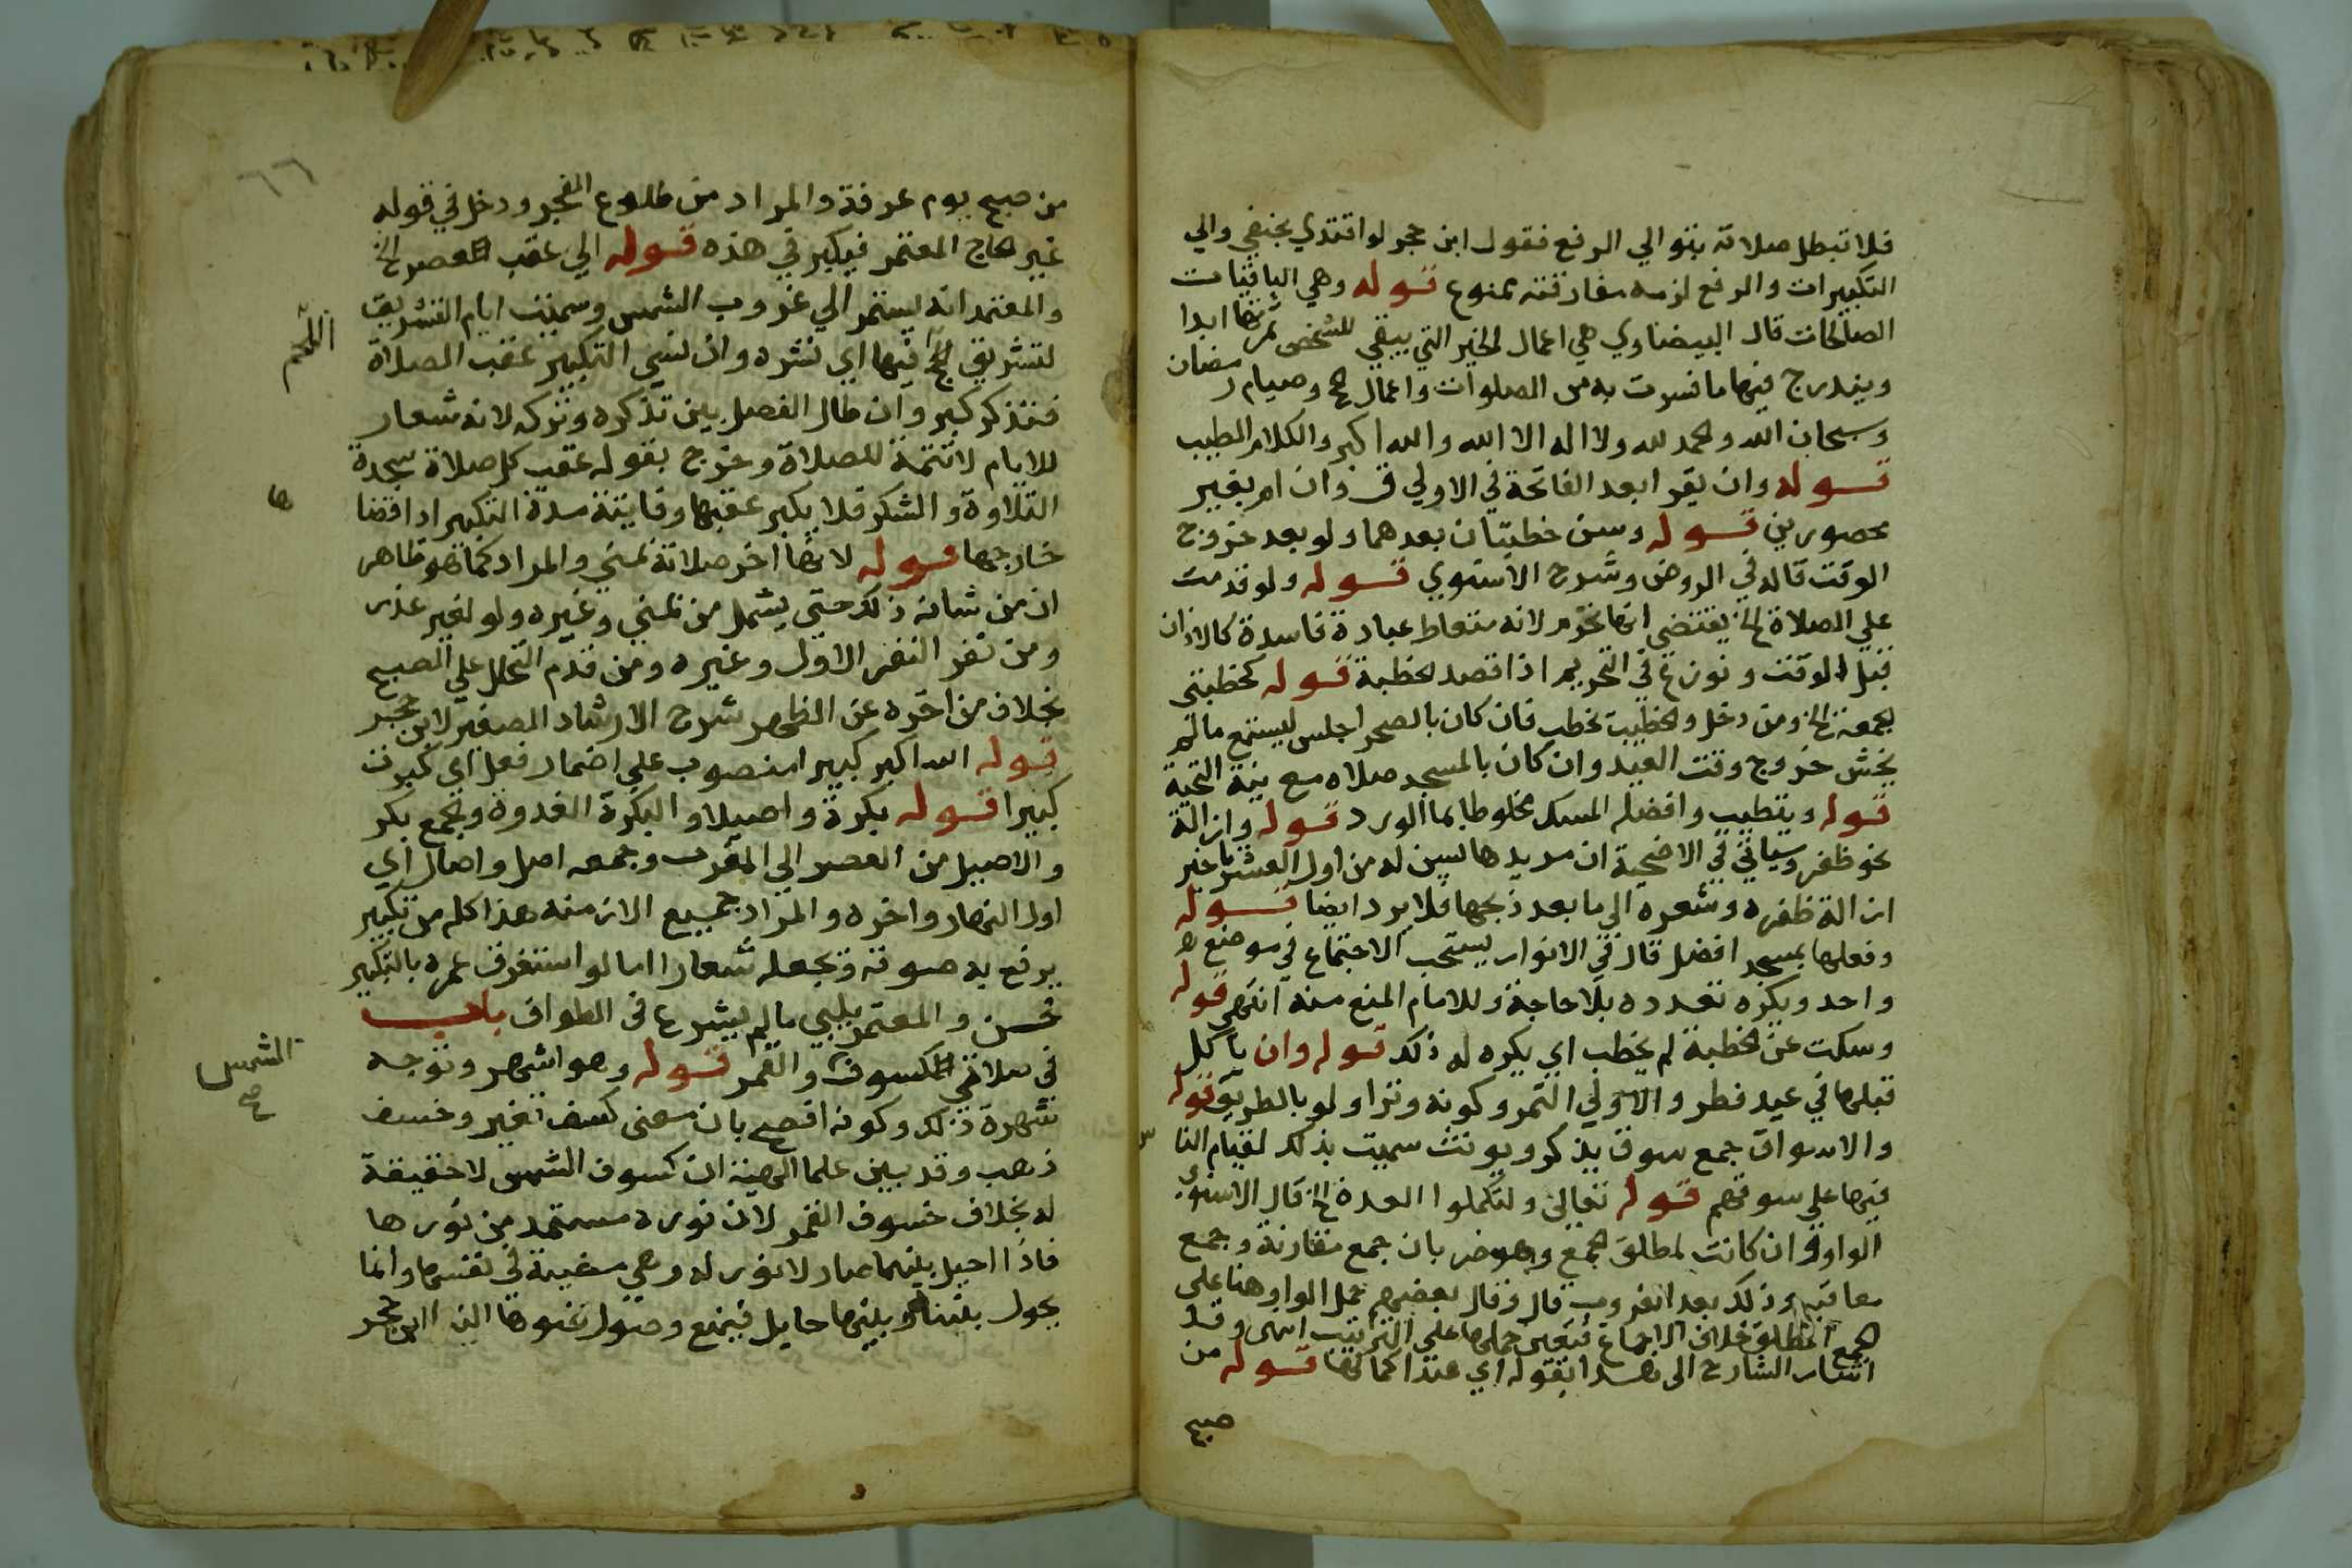 فلا تبطل صلاته بتوالي الرفع فقول ابن حجر لو اقتدي بحنفي والي
التكبيرات والرفع لزمه مفارقته ممنوع قوله وهي الباقيات
الصالحات قال البيضاوي هي اعمال الخير التي يبقي للشخص ثمرتها ابدا
ويندرج فيها ما فسرت به من الصلوات واعمال الحج وصيام رمضان
وسبحان الله والحمد لله ولا اله الا الله والله اكبر والكلام الطيب
قوله وان يقرا بعد الفاتحة في الاولي ق وان ام بغير
محصورين قوله وسن خطبتان بعدهما ولو بعد خروج
الوقت قاله في الروض وشرح الاسنوي قوله ولو قدمت
علي الصلاة الخ يقتضي انها تحرم لانه متعاط عبادة فاسدة كالاذان
قبل الوقت ونوزع في التحريم اذا قصد الخطبة قوله كخطبتي
الجمعة الخ ومن دخل والخطيب يخطب فان كان بالصحرا جلس ليستمع ما لم
يخش خروج وقت العيد وان كان بالمسجد صلاه مع نية التحية
قوله ويتطيب وافضله المسك مخلوطا بما الورد قوله وازالة
نحو ظفر وسياتي في الاضحية ان مريدها يسن له من اول العشر تاخير
ازالة ظفره وشعره الي ما بعد ذبحها فلا يرد ايضا قوله
وفعلها بمسجد افضل قال في الانوار يستحب الاجتماع في موضع
واحد ويكره تعدده بلا حاجة وللامام المنع منه انتهي قوله
وسكت عن الخطبة لم يخطب اي يكره له ذلك قوله وان ياكل
قبلها في عيد فطر والاولي التمر وكونه وترا ولو بالطريق قوله
والاسواق جمع سوق يذكر ويونث سميت بذلك لقيام الناس
فيها علي سوقهم قوله تعالي ولتكملوا العدة الخ قال الاسنوي
الواو وان كانت لمطلق الجمع وهو ضربان جمع مقارنة وجمع
معاقبة وذلك بعد الغروب قال وقال بعضهم حمل الواو هنا علي
الجمع المطلق خلاف الاجماع فتعين حملها علي الترتيب انتهى وقد
اشار الشارح الى هذا بقوله اي عند اكمالها قوله من
صبح
٦٦
من صبح يوم عرفة والمراد من طلوع الفجر ودخل في قوله
غير الحاج المعتمر فيكبر في هذه قوله الي عقب العصر الخ
والمعتمد انه يستمر الي غروب الشمس وسميت ايام التشريق
اللحم
لتشريق فيها اي نشره وان نسي التكبير عقب الصلاة
فتذكر كبر وان طال الفصل بين تذكره وتركه لانه شعار
للايام لا تتمة للصلاة وخرج بقوله عقب كل صلاة سجدة
التلاوة والشكر فلا يكبر عقبها وفايتة مدة التكبير اذا قضا
ها
خارجها قوله لانها اخر صلاته بمني والمراد كما هو ظاهر
ان من شانه ذلك حتي يشمل من بمني وغيره ولو لغير عذر
ومن نفر النفر الاول وغيره ومن قدم التحلل علي الصبح
بخلاف من اخره عن الظهر شرح الارشاد الصغير لابن حجر
قوله الله اكبر كبيرا منصوب علي اضمار فعل اي كبرت
كبيرا قوله بكرة واصيلا والبكرة الغدوة والجمع بكر
والاصيل من العصر الي المغرب وجمعه اصل واصال اي
اول النهار واخره والمراد جميع الازمنة هذا كله من تكبير
يرفع به صوته ويجعله شعارا اما لو استغرق عمره بالتكبير
فحسن والمعتمر يلبي ما لم يشرع في الطواف باب
في صلاتي الكسوف والقمر قوله وهو اشهر وتوجه
الشمس
صح
شهرة ذلك وكونه افصح بان معنى كسف تغير وخسف
ذهب وقد بين علما الهيئة ان كسوف الشمس لا حقيقة
له بخلاف خسوف القمر لان نوره مستمد من نورها
فاذا احيل بينهما صار لا نور له وهي مضيئة في نفسها وانما
يحول بيننا وبينها حايل فيمنع وصول ضوها الينا ابن حجر